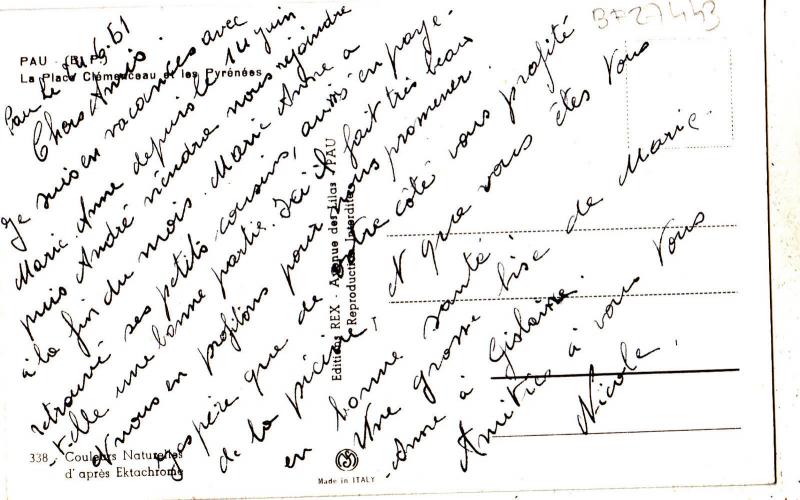 BF27443
PAU - (B.P.)
La Place Clémenceau et les Pyrénées
Pau le 24.6.61
Chers Amis.
Je suis en vacances avec
Marie Anne depuis le 14 juin
puis André viendra nous rejoindre
à la fin du mois. Marie Anne a
retrouvé ses petits cousins, aussi en paye-
-t-elle une bonne partie. Ici il fait très beau
et nous en profitons pour nous promener.
J'espère que de votre côté vous profité
de la piscine, et que vous êtes tous
en bonne santé.
Une grosse bise de Marie-
-Anne à Gislaine.
Amitiés à vous tous
Nicole.
Editions REX - Avenue des Lilas - PAU
Reproduction Interdite
338 - Couleurs Naturelles
d'après Ektachrome
Made in ITALY